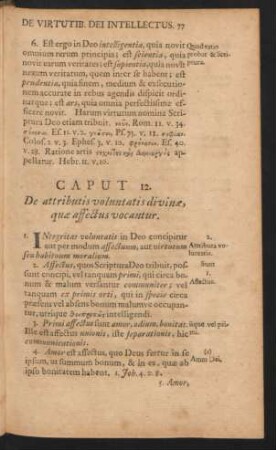 DE VIRTUTIB. DEI INTELLECTUS. 77
6. Est ergo in Deo intelligentia, quia novit
omnium rerum principia; est scientia, quia
novit earum veritates: est sapientia, quia novit
earum veritatum, quem inter se habent; est
prudentia, quia finem, medium & exsecutio-
nem accurate in rebus agendis disposit ordi-
natque: est ars, quia omnia perfectissime effi-
cere novit. Harum virtutum nomina Scri-
ptura Deo etiam tribuit. Rom. 11. v. 34.
Es. 11. v. 2. Ps. 75. v. 13.
Coloss. 2. v. 3. Ephes. 3. v. 10. Es. 40.
v. 28. Ratione artis ap-
pellatur. Hebr. 11. v. 10.
Quod ratio
probat & Scri-
ptura.
CAPUT 12.
De attributis voluntatis divinæ,
quæ affectus vocantur.
1. INtegritas voluntatis in Deo concipitur
aut per modum affectuum, aut virtutum
seu habituum moralium.
1.
Attributa vo-
luntatis.
2. Affectus, quos Scriptura Deo tribuit, pos-
sunt concipi, vel tanquam primi, qui circa bo-
num & malum versantur communiter; vel
tanquam ex primis orti, qui in specie circa
præsens vel absens bonum malumve occupan-
tur, utrique intelligendi.
Sunt
1.
Affectus.
3. Primi affectus sunt amor, odium, bonitas.
Ille est affectus unionis, iste separationis, hic
communicationis.
iique vel pri-
4. Amor est affectus, quo Deus fertur in se
ipsum, ut summum bonum, & in ea, quæ ab
ipso bonitatem habent. 1. Joh. 4. v. 8.
Amor Dei.
5. Amor,